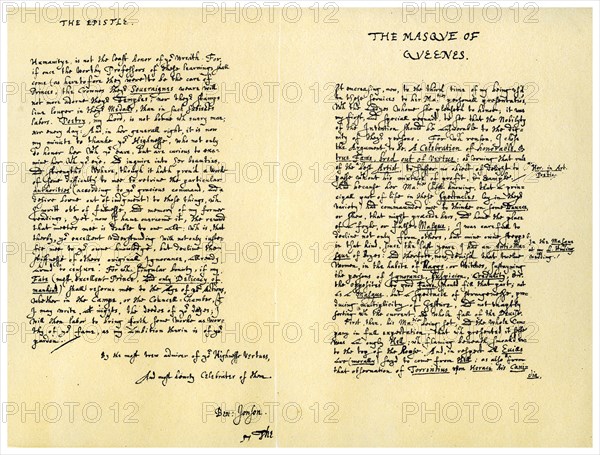 THE EPISTLE.
Humanitye, is not the least honor of yr Wreath. For,
if once the worthy Professors of these learnings shall
come (as heretofore they were) to be the care of
Princes, the Crownes theyr Soveraignes weare will
not more adorne theyr Temples; nor theyr stamps
live longer in theyr Medalls, than in such Subiects
labors. Poetry, my Lord, is not borne wth every man;
nor every day: And, in her generall right, it is now
my minute to thanke yr Highnesse, who not only
do honor her wth yr eare, but are curious to exa-
mine her wth yr eye, and inquire into her beauties,
and strengths. Where, though it hath proved a worke
of some difficulty to me to retrive the particular
authorities (according to yr gracious command, and a
desire borne out of iudgment) to those things, wch
I writt out of fullnesse, and memory of my former
readings; yet, now I have overcome it, the reward
that meetes me is double to one act: wch is, that
therby, yr excellent understanding will not only iustefie
me to yr owne knowledge, but decline the
stiffnesse of others originall Ignorance, allready
arm'd to censure. For wch singular bounty, if my
Fate (most excellent Prince, and only Delicacy of
mankind) shall reserve mee to the Age of yr Actions,
whether in the Campe, or the Councell-Chamber, yt
I may write, at nights, the deedes of yr dayes;
I will then labor to bring forth some worke as wor-
thy of yr fame, as my ambition therin is of yr
pardon.
By the most trew admirer of yr Highnesse Vertues,
And most hearty Celebrater of them.
Ben: Jonson.
THE MASQVE OF
QVEENES.
It encreasing, now, to the third time of my being us'd
in these Services to her Maties personall presentations,
wth the Ladyes whome she pleaseth to honor; it was
my first, and speciall reguard, to see that the Nobility
of the Invention should be answerable to the dig-
nity of theyr persons. For wch reason, I chose
the Argument, to be, A Celebration of honorable, &
true Fame, bred out of Vertue: observing that rule
of the best Artist, to suffer no obiect of delight to
passe wthout his mixture of profit, & example.
Hor. in Art.
Poetic.
And because her Matie (best knowing, that a prin-
cipall part of life in these Spectacles lay in theyr
variety) had commaunded mee to think on some Daunce,
or shew, that might præcede hers, and have the place
of a foyle, or false-Masque; I was carefull to
decline not only from others, but mine owne stepps
in that kind, since the last yeare I had an Anti-Masque
In the Masque
at my L. Hading:
wedding.
of Boyes: and therefore, now, devis'd that twelve
Women, in the habite of Haggs, or Witches, sustayning
the persons of Ignorance, Suspicion, Credulity, &c.
the opposites to good Fame, should fill that part; not
as a Masque, but a spectacle of strangenesse, pro-
ducing multiplicity of Gesture, and not unaptly
sorting wth the current, and whole fall of the Devise.
First, then, his Matie being set, and the whole Com-
pany in full expectation, that wch presented it selfe
was an ougly Hell; wch flaming beneath, smoakd unto
to the top of the Roofe. And, in respect all Evills
are (morally) sayd to come from Hell; as also from
that observation of Torrentius upon Horace his Cani-
dia,